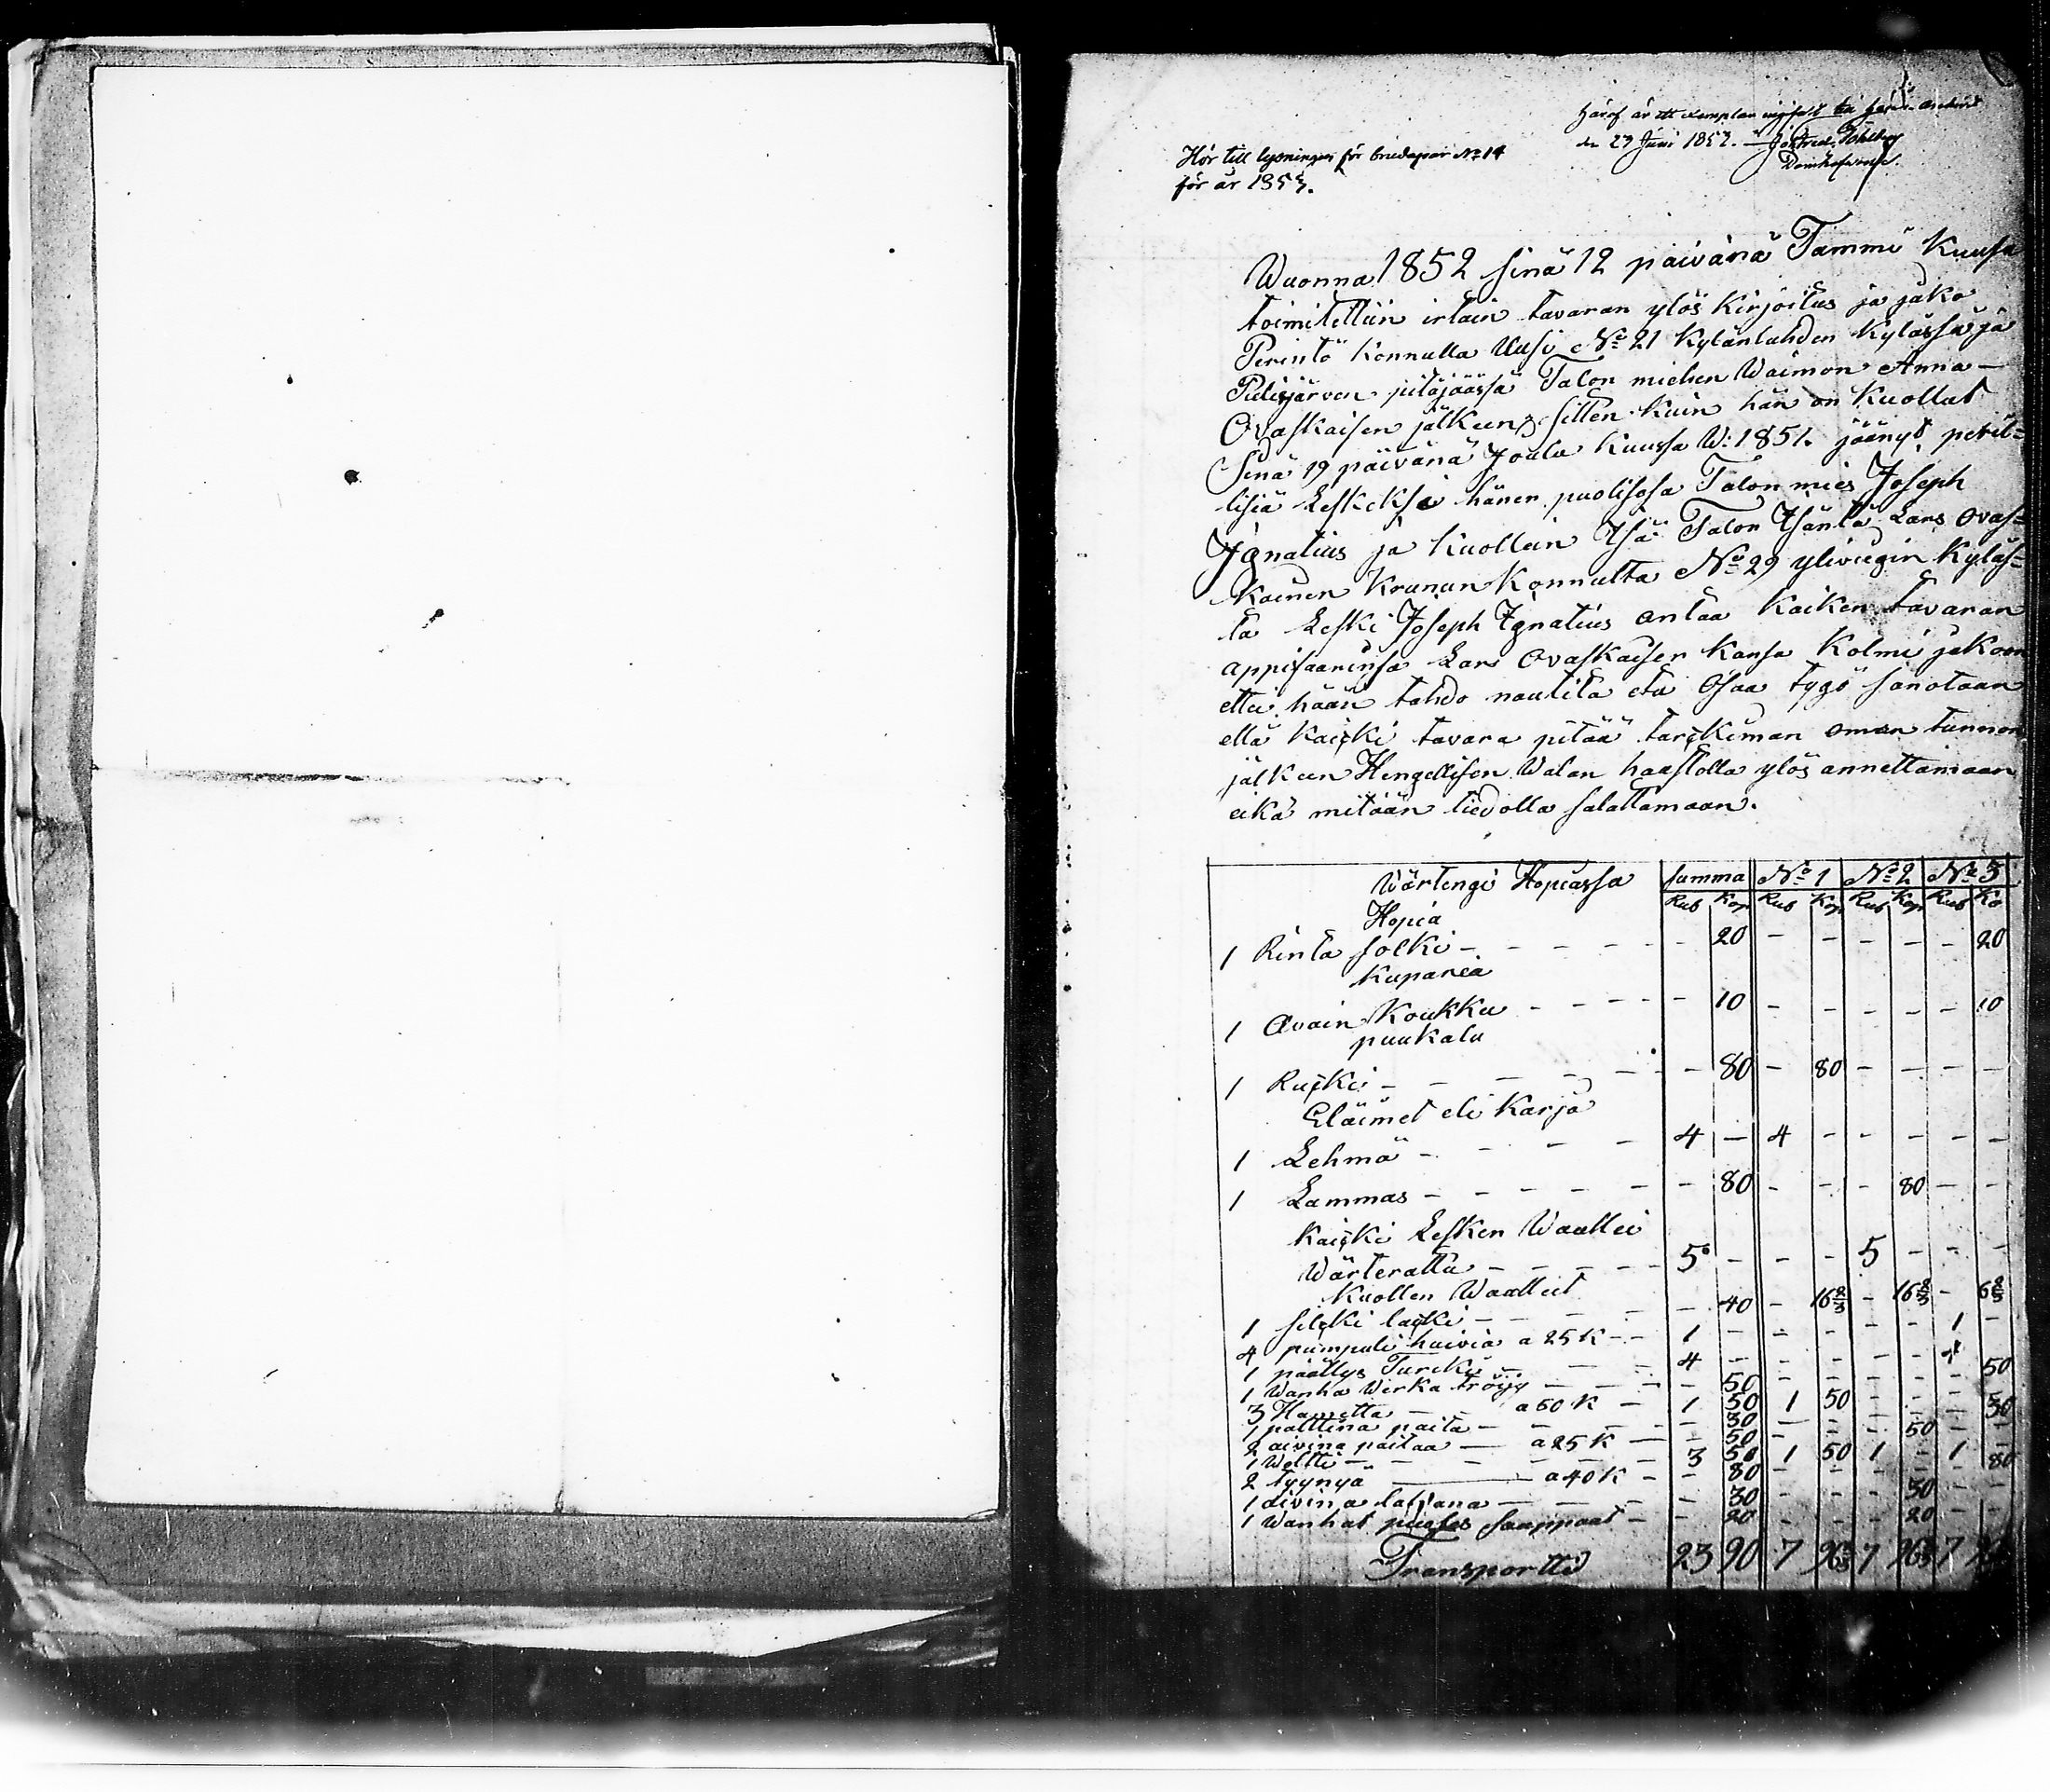 Häraf är ett exemplar
den 23 Juni 1852.
Domhafvande.
Hör till lysningen för brudepar No 14
för år 1853.
Wuonna 1852 sinä 12 päivänä Tammi Kuusa
toimitettiin irtain tavaran ylös kirjoitus ja jako
Perintö Konnulla Uusi No 21 Kylänlahden Kylässä ja
Pielisjärven pitäjäässä Talon miehen Waimon Anna
Ovaskaisen jälkeen, sitten kuin hän on Kuollut
Sinä 19 päivänä Joulu Kuussa W: 1851. jäänyt peril=
lisiä Leskeksi hänen puolisosa Talon mies Joseph
Ignatius ja Kuollein Isä Talon Isäntä Lars Ovas=
kainen Krunun Konnulta No 29 yliviegin Kyläs=
tä Leski Joseph Ignatius antaa Kaiken tavaran
appisaarinsa Lars Ovaskaisen Kansa Kolmi jakoon
ettei hään tahdo nautita eta Osaa tygö sanotaan
että kaicki tavara pitää tarckiman oman tunnon
jälkeen Hengellisen Walan haastolla ylös annettamaan
eikä mitään tiedolla salattamaan.
Wärtengi Hopiassa Summa No 1 No 2 No 3
Hopia Rub Kop Rub Kop Rub Kop Rub Ko
1 Rinta solki - - 20 - - - - - 20
Kuparia
1 Avain Koukku - - 10 - - - - - 10
puukalu
1 Rucki - - 80 - 80 - - - -
Eläimet eli Karja
1 Lehmä - 4 - 4 - - - - -
1 Lammas - - 80 - - - 80 - -
Kaicki Lesken Waattei
Wärterattu - 5 - - - 5 - - -
Kuollen Waatteet
1 silcki lacki - - 40 - 16 2/3 - 16 2/3 - 6 2/3
4 pumpuli huivia a 25 K - 1 - - - - - 1 -
1 päällys Turcki - 4 - - - - - 4 -
1 Wanha Werka tröijy - - 50 - - - - - 50
3 Hametta - a 50 K - 1 50 1 50 - - - -
1 palttina paita - - 30 - - - - - 30
2 aivina paitaa - a 25 K - - 50 - - - 50 - -
1 Weltti - 3 50 1 50 1 - 1 -
2 tyynyä - a 40 K - - 80 - - - - - 80
1 aivina lakana - - 30 - - - 30 - -
1 Wanhat saappaat - - 20 - - - 20 - -
Transportti 23 90 7 96 2/3 7 96 2/3 7